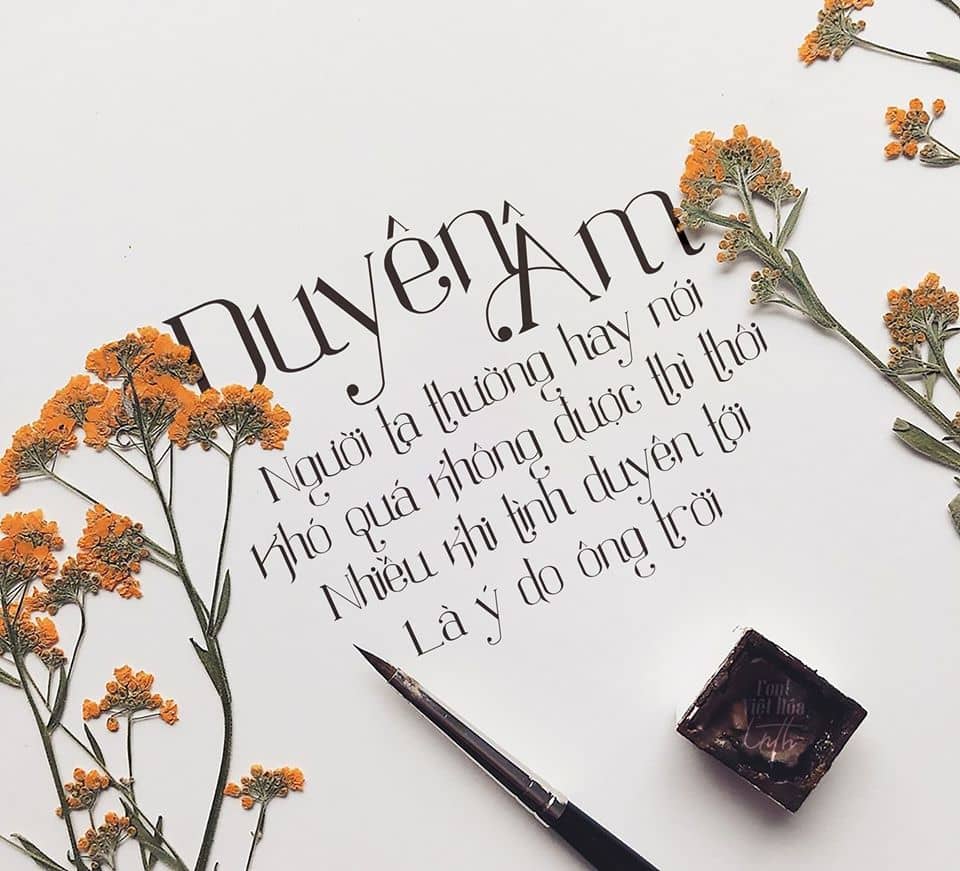 Duyên Âm
Người ta thường hay nói
Khó quá không được thì thôi
Nhiều khi tình duyên tới
Là ý do ông trời
Font
Việt Hóa